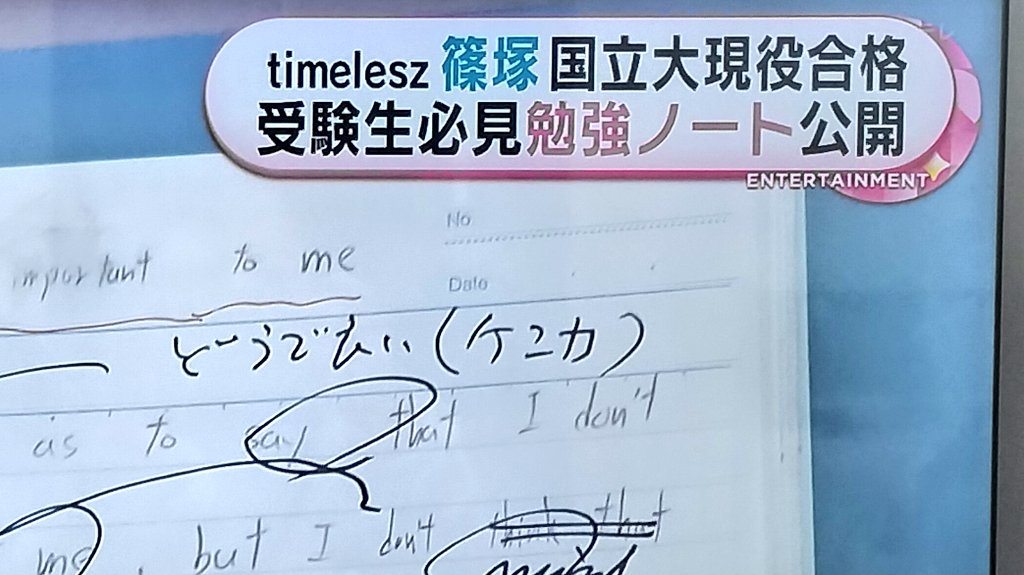 timelesz 篠塚 国立大現役合格
受験生必見勉強ノート公開
ENTERTAINMENT
No
important to me
Date
どうでもいい(ケニカ)
as to say that I don't
me, but I don't think that